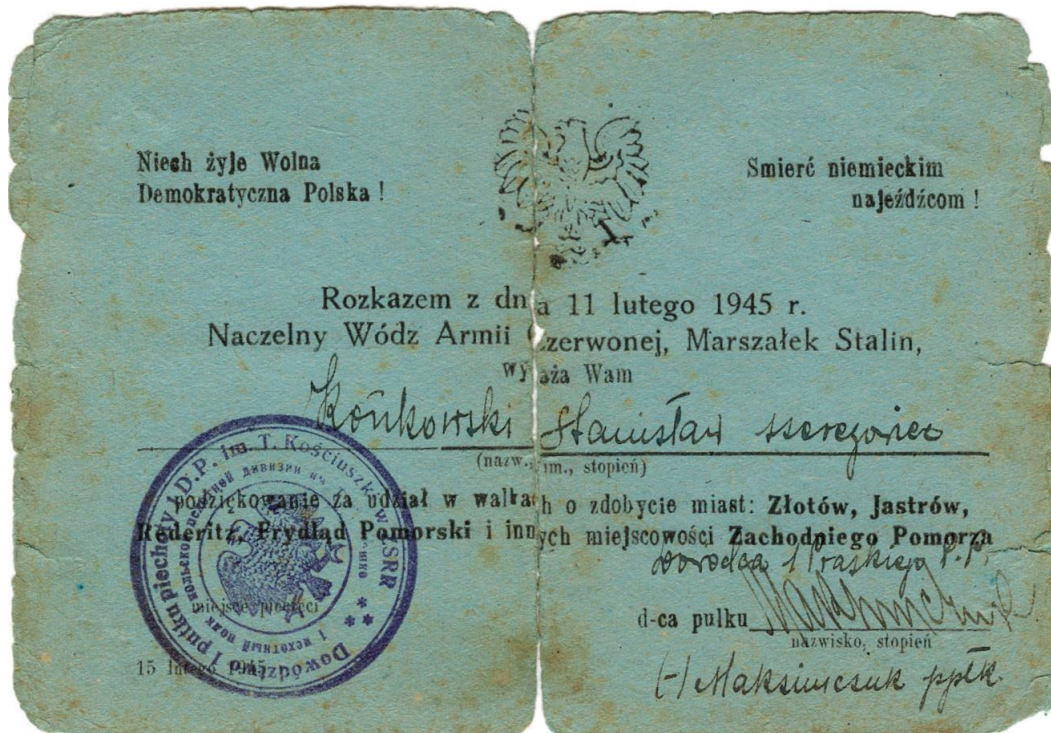 Niech żyje Wolna
Demokratyczna Polska !
Smierć niemieckim
najeźdźcom !
Rozkazem z dnia 11 lutego 1945 r.
Naczelny Wódz Armii Czerwonej, Marszałek Stalin,
wyraża Wam
Końkowski Stanisław szeregowiec
(nazw., im., stopień)
podziękowanie za udział w walkach o zdobycie miast: Złotów, Jastrów,
Rederitz, Frydląd Pomorski i innych miejscowości Zachodniego Pomorza
dowódca 1 Praskiego P.P.
d-ca pułku
nazwisko, stopień
(-) Maksimczuk ppłk.
miejsce pieczęci
15 lutego 1945
Dowództwo 1 pułku piechoty 1 D.P. im. T. Kościuszki w ZSRR
1 пехотный полк польской пехотной дивизии